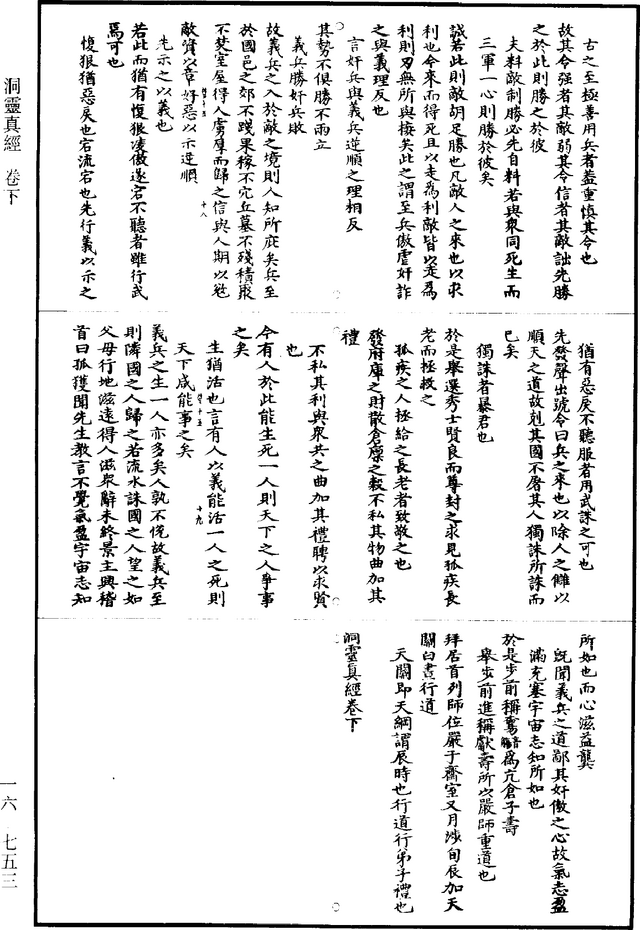 古之至極善用兵者蓋重慎其令也
故其令强者其敵弱其令信者其敵詘先勝
之於此則勝之於彼
夫料敵制勝必先自料若與衆同死生而
三軍一心則勝於彼矣
誠若此則敵胡足勝也凡敵人之來也以求
利也今來而得死且以走爲利敵皆以走爲
利則刃無所與接矣此之謂至兵傲虐奸詐
之與義理反也
言奸兵與義兵逆順之理相反
其勢不俱勝不兩立
義兵勝奸兵敗
故義兵之入於敵之境則人知所庇矣兵至
於國邑之郊不踐果稼不穴丘墓不殘積聚
不焚室屋得人虜厚而歸之信與人期以
敵資以章好惡以示逆順
先示之以義也
若此而猶有愎狠凌傲遂宕不聽者雖行武
焉可也
愎狠猶惡戾也宕流宕也先行義以示之
猶有惡戾不聽服者用武誅之可也
先發聲出號令曰兵之來也以除人之讎以
順天之道故剋其國不屠其人獨誅所誅而
已矣
獨誅者暴君也
於是舉選秀士賢良而尊封之求見孤疾長
老而拯救之
孤疾之人拯給之長老者致敬之也
發府庫之財散倉廩之穀不私其物曲加其
禮
不私其利與衆共之曲加其禮聘以求賢
也
今有人於此能生死一人則天下之人爭事
之矣
生猶活也言有人以義能活一人之死則
天下咸能事之矣
義兵之生一人亦多矣人孰不悅故義兵至
則隣國之人歸之若流水誅國之人望之如
父母行地滋遠得人滋衆辭未終景主興稽
首曰孤獲聞先生教言不覺氣盈宇宙志知
所如也而心滋益龔
旣聞義兵之道鄙其奸傲之心故氣志盈
滿充塞宇宙志知所如也
於是步前稱觴爲亢倉子壽
舉步前進稱獻壽所以嚴師重道也
拜居首列師位嚴于齋室又月涉旬辰加天
關白晝行道
天關即天綱謂辰時也行道行弟子禮也
洞靈真經卷下
洞靈真經　卷下
一六　七五三